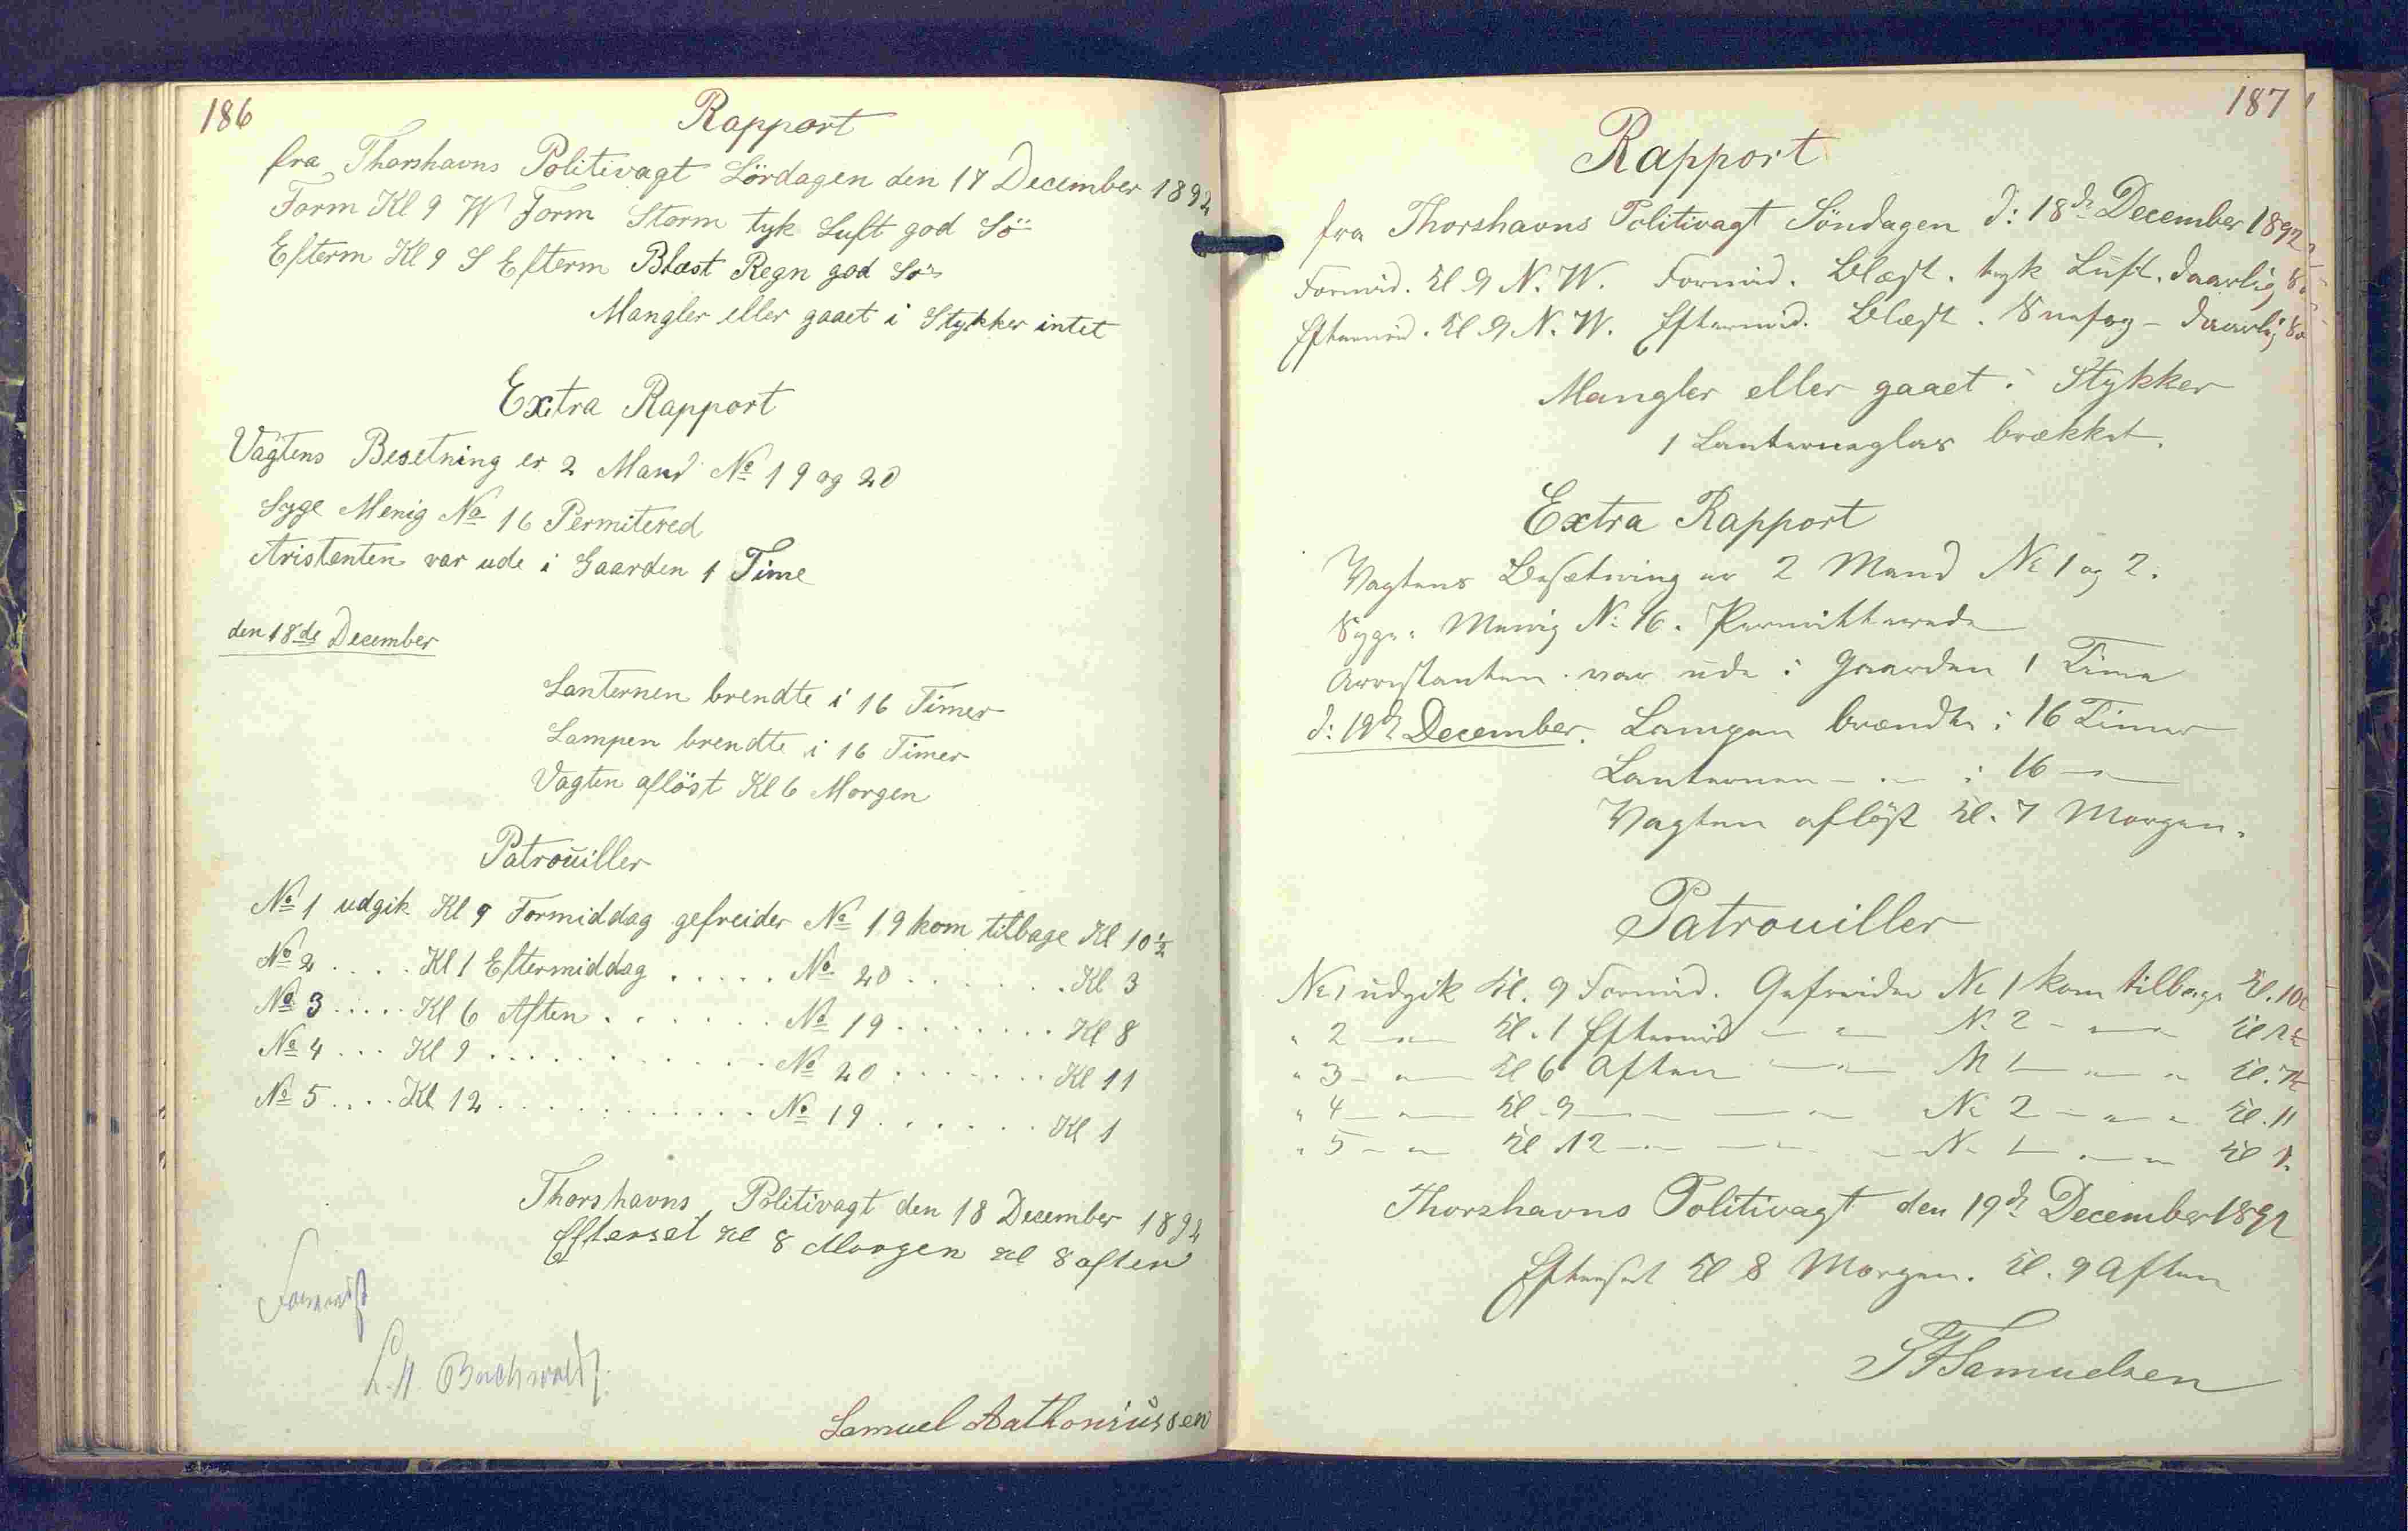 186
Rapport
fra Thorshavns Politivagt Lördagen den 17 December 1892
Form Kl 9 W Form Storm tyk Luft god Sö
Efterm Kl 9 S Efterm Blæst Regn god Sö
Mangler eller gaaet i Stykker intet
Extra Rapport
Vagtens Besetning er 2 Mand No 19 og 20
Syge Menig No 16 Permitered
Aristanten var ude i Gaarden 1 Time
den 18de December
Lanternen brendte i 16 Timer
Lampen brendte i 16 Timer
Vagten aflöst Kl 6 Morgen
Patrouiller
No 1 udgik Kl 9 Formiddag gefreider No 19 kom tilbage Kl 10 1/2
No 2 .... Kl 1 Eftermiddag ..... No 20 ....... Kl 3
No 3 ..... Kl 6 Aften ....... No 19 ....... Kl 8
No 4 ... Kl 9 ............ No 20 ....... Kl 11
No 5 .... Kl 12 ........... No 19 ...... Kl 1
Thorshavns Politivagt den 18 December 1892
Efterset Kl 8 Morgen Kl 8 aften
Buchwaldt
Samuel
187
Rapport
fra Thorshavns Politivagt Söndagen d: 18de December 1892
Formid. Kl 9 N. W. Formid. Blæst. tyk Luft. daarlig
Eftermid. Kl 9 N. W. Eftermid. Blæst. Snefog - daarlig
Mangler eller gaaet i Stykker
1 Lanterneglas brækket.
Extra Rapport
Vagtens Besætning er 2 Mand No 1 og 2.
Syge: Menig No 16. Permitterede
Arrestanten var ude i Gaarden 1 Time
d: 19de December. Lampen brændte i 16 Timer
Lanternen - " - i 16 - " -
Vagten aflöst Kl. 7 Morgen.
Patrouiller
No 1 udgik Kl. 9 Formid. Gefreider No 1 kom tilbage Kl.
" 2 - " - Kl. 1 Eftermid - " - No 2 - " - " Kl
" 3 - " - Kl 6 Aften - " - No 1 - " - " Kl.
" 4 - " - Kl. 9 - " - - " - No 2 - " - " Kl. 11
" 5 - " - Kl 12 - " - - " - No 1 - " - " Kl
Thorshavns Politivagt den 19de December 1892
Efterset Kl 8 Morgen. Kl. 9 Aften
Samuelsen